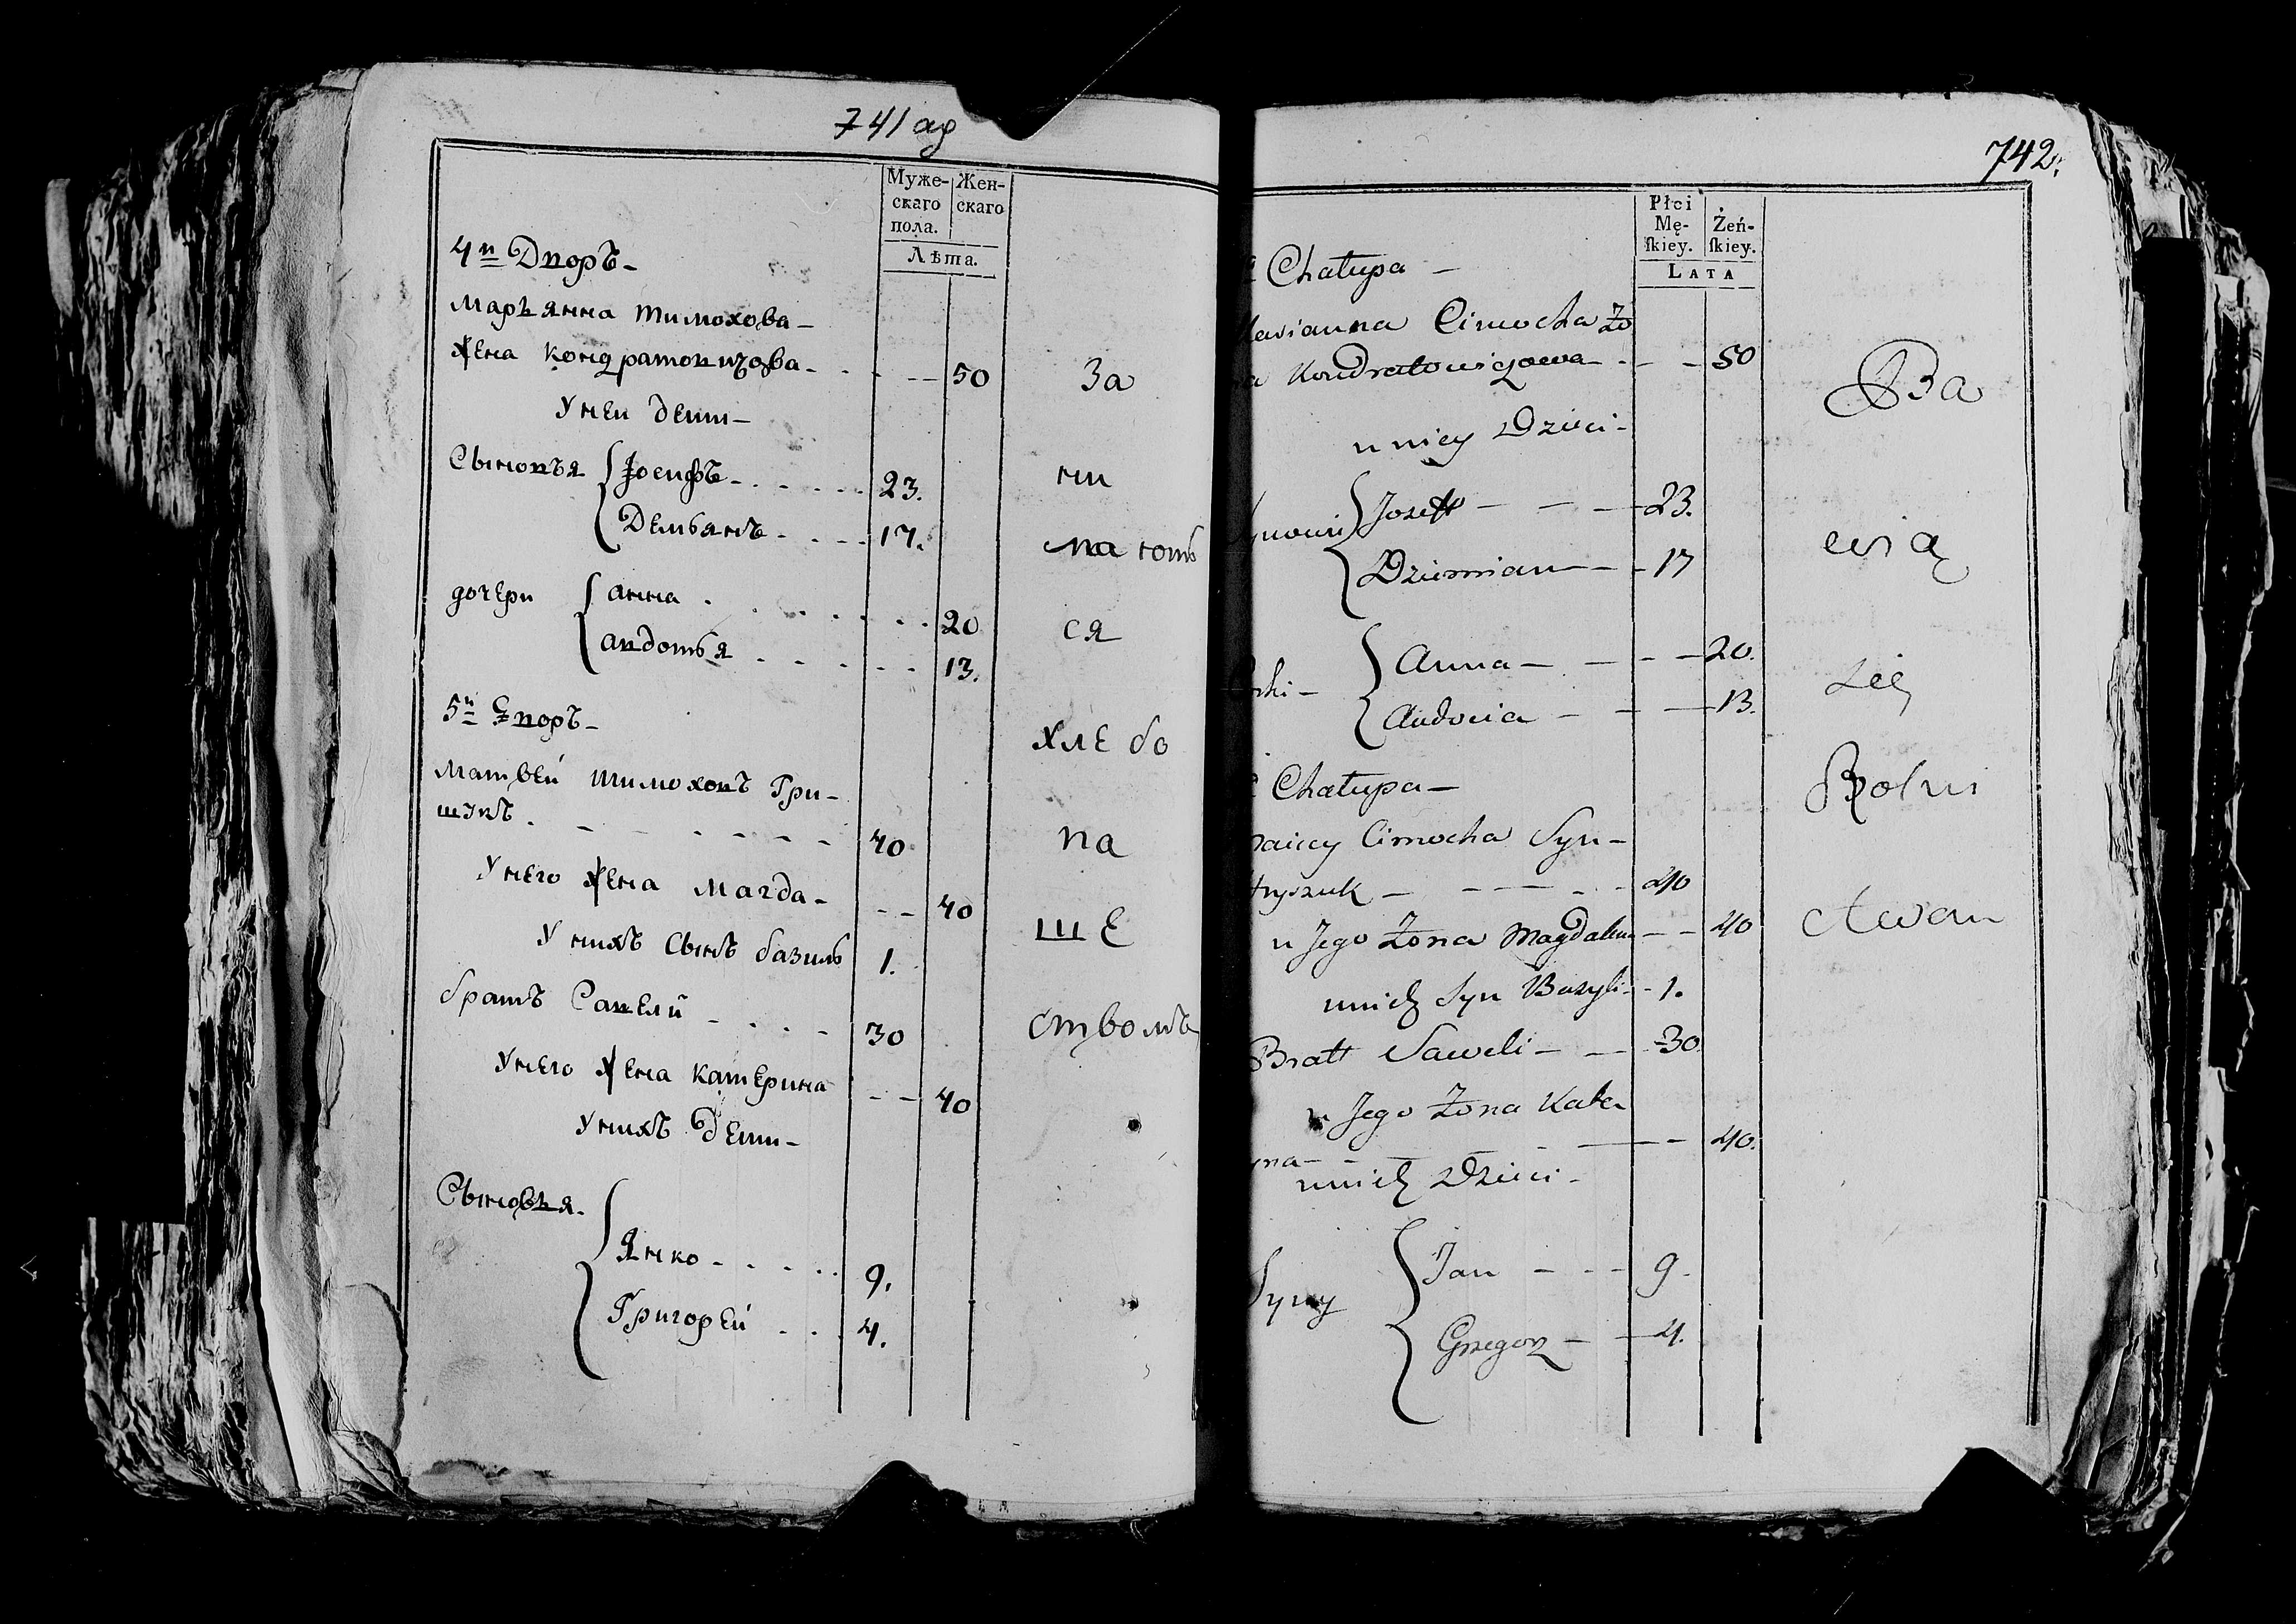 741 ад
Муже-
скаго
пола.
Жен-
скаго
Лѣта.
4й Дворъ -
Марьянна Тимохова -
жена Кондратовичова - 50
У неи дети -
Сыновья Иосифъ - 23.
Демьянъ - 17.
дочери Анна . 20
Авдотья 13.
5й Дворъ -
Матвей Тимоховъ Гри-
шукъ . 40
У него жена Магда - 40
У нихъ сынъ Базиль 1.
братъ Савелй - 30
У него жена Катерина 40
У нихъ дети -
Сыновья -
Янко - 9.
Григорей 4.
За
ни
мають
ся
хлебо
па
ше
ствомъ
742.
Płci
Mę-
ſkiey.
Żeń-
ſkiey.
LATA
Chałupa -
Marianna Cimocha Żo
na Kondratowiczowa - 50
u niey Dzieci -
Synowie Jozeff - 23.
Dziemian - 17
Corki - Anna - 20.
Audocia - 13.
Chałupa -
Maicey Cimocha Syn -
Hryszuk - 40
u Jego Żona Magdalena - 40
u nich Syn Bazyli - 1.
Bratt Saweli - 30.
u Jego Żona Kate
ryna - 40.
u nich Dzieci -
Syny Jan - 9.
Grzegorz - 4.
Ba
wią
się
Rolni
ctwem